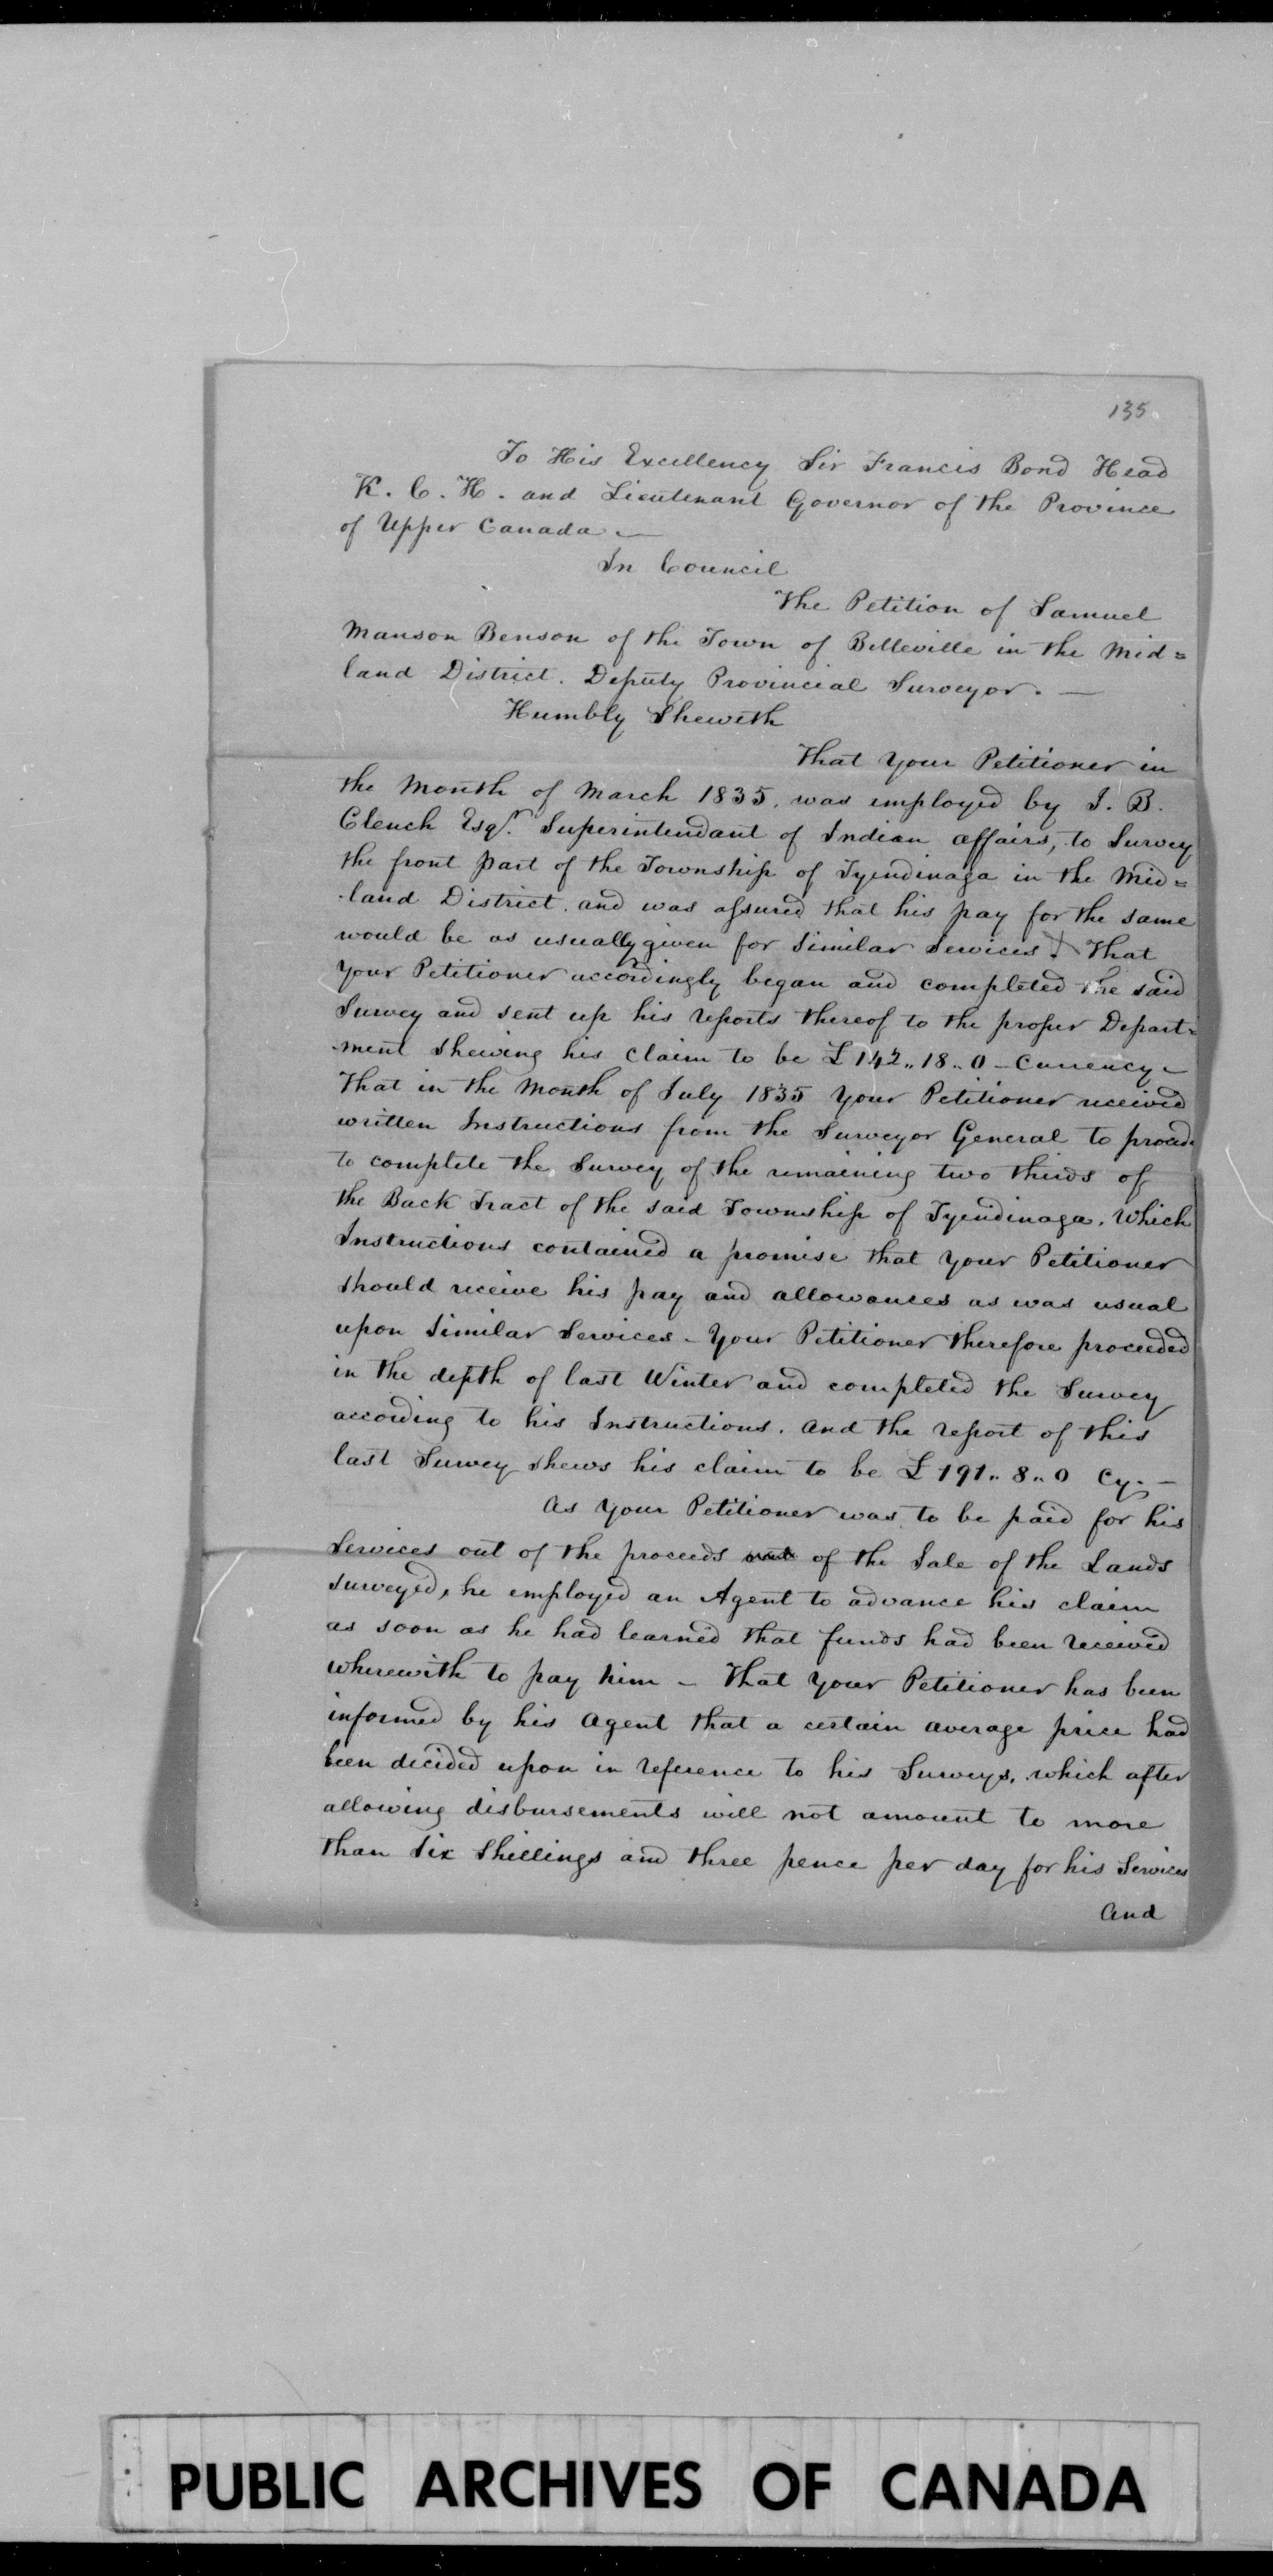 135.
To His Excellency Sir Francis Bond Head
K. C. H. and Lieutenant Governor of the Province
of Upper Canada —
In Council
The Petition of Samuel
Manson Benson of the Town of Belleville in the Mid=
land District. Deputy Provincial Surveyor. —
Humbly Sheweth
That Your Petitioner in
the Month of March 1835. was employed by J. B.
Clench Esqr. Superintendant of Indian affairs, to Survey
the front part of the Township of Tyendinaga in the Mid=
land District. and was assured that his pay for the same
would be as usually given for Similar Services. That
Your Petitioner accordingly began and completed the said
Survey and sent up his reports thereof to the proper Depart=
ment Shewing his Claim to be £142,, 18,, 0 – Currency –
That in the Month of July 1835 Your Petitioner received
written Instructions from the Surveyor General to proceed
to complete the Survey of the remaining two thirds of
the Back Tract of the said Township of Tyendinaga. Which
Instructions contained a promise that Your Petitioner
should receive his pay and allowances as was usual
upon Similar Services – Your Petitioner therefore proceeded
in the depth of last Winter and completed the Survey
according to his Instructions. And the report of this
last Survey shews his claim to be £191,, 8,, 0 Cy. –
As Your Petitioner was to be paid for his
Services out of the proceeds out of the Sale of the Lands
surveyed, he employed an Agent to advance his claim
as soon as he had learned that funds had been received
wherewith to pay him – That Your Petitioner has been
informed by his Agent that a certain average price had
been decided upon in reference to his Surveys, which after
allowing disbursements will not amount to more
than Six Shillings and three pence per day for his Services
And
PUBLIC ARCHIVES OF CANADA